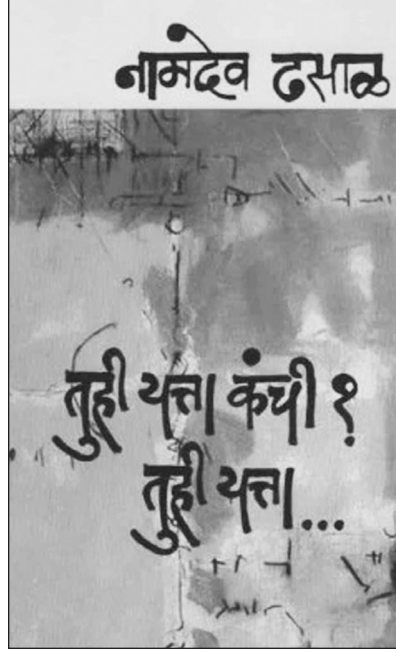 नामदेव ढसाळ
तुही यत्ता कंची ?
तुही यत्ता...